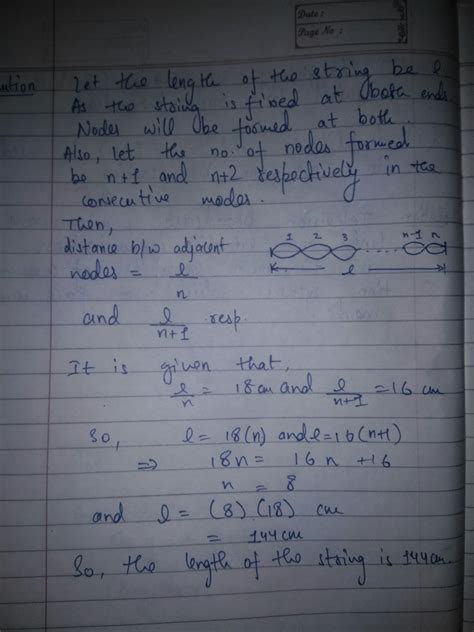 Date :
Page No :
ution Let the length of the string be l
As the string is fixed at both ends
Nodes will be formed at both.
Also, let the no. of nodes formed
be n+1 and n+2 respectively in the
consecutive modes.
Then,
distance b/w adjacent
nodes = l/n
1 2 3 .... n-1 n
l
and l/n+1 resp.
It is given that,
l/n = 18 cm and l/n+1 = 16 cm
So, l = 18(n) and l = 16(n+1)
⇒ 18n = 16n +16
n = 8
and l = (8).(18) cm
= 144cm
So, the length of the string is 144cm.